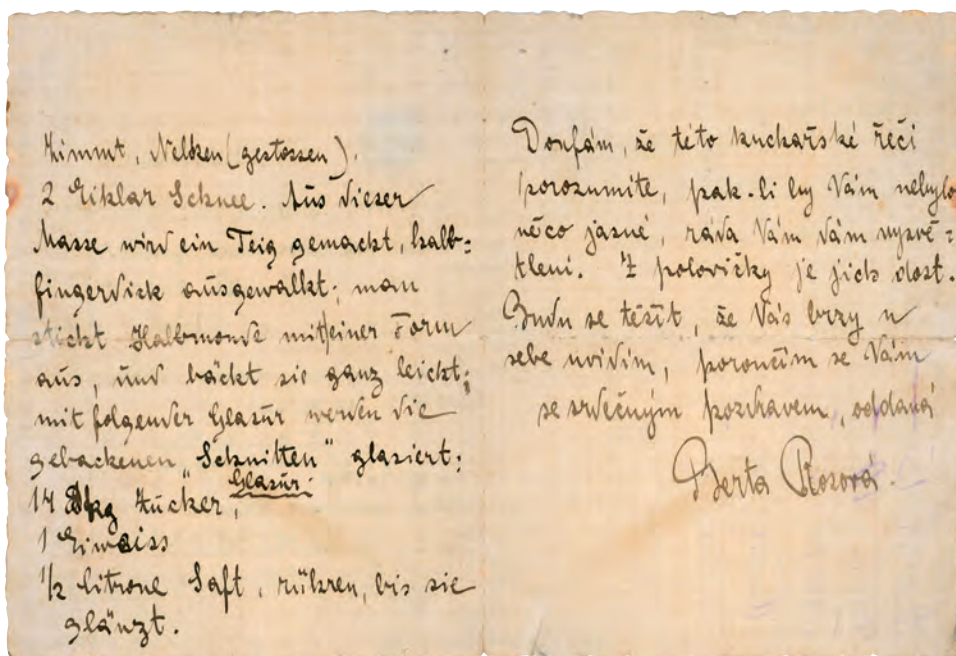 Zimmt, Nelken (gestossen).
2 Eiklar Schnee. Aus dieser
Masse wird ein Teig gemacht, halb=
fingerdick ausgewalkt; man
sticht Halbmonde mit einer Form
aus, und bäckt sie ganz leicht;
mit folgender Glasur werden die
gebackenen „Schnitten" glasiert;
Glasur:
14 dkg Zucker,
1 Eiweiss
1/2 Citrone Saft, rühren, bis sie
glänzt.
Doufám, že této kuchařské řeči
porozumíte, pak-li by Vám nebylo
něco jasné, ráda Vám dám vysvě=
tlení. Z polovičky je jich dost.
Budu se těšit, že Vás brzy u
sebe uvidím, poroučím se Vám
se srdečným pozdravem, oddaná
Berta Rosová.